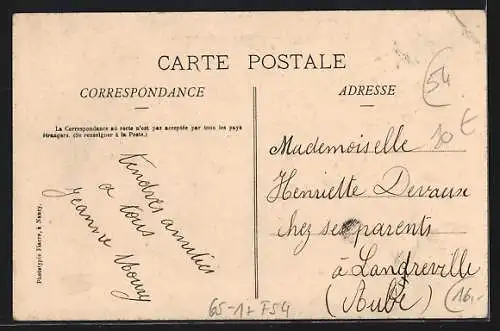 CARTE POSTALE
CORRESPONDANCE
ADRESSE
La Correspondance au recto n'est pas acceptée par tous les pays
étrangers. (Se renseigner à la Poste.)
Tendres amitiés
à tous
Jeanne
Mademoiselle
Henriette Devause
chez ses parents
à Landreville
(Aube)
Phototypie Pierre, à Nancy.
54
10 €
65-17 F54
16,-